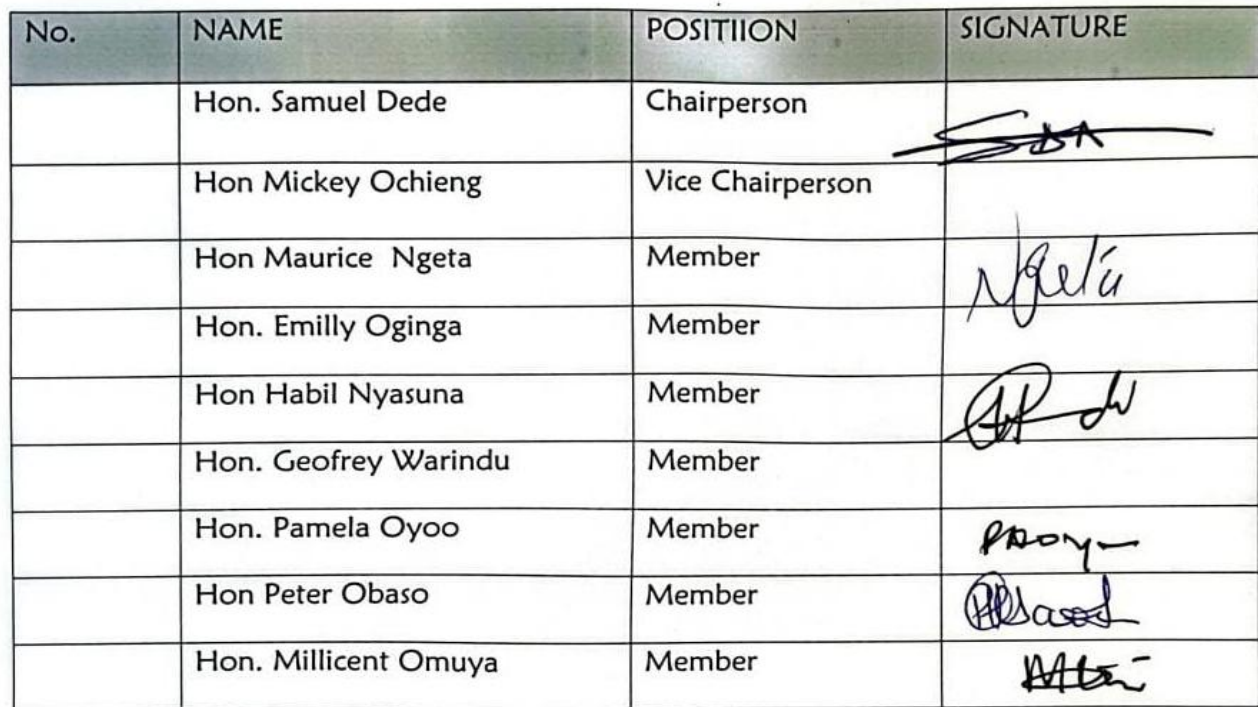 No. NAME POSITIION SIGNATURE
Hon. Samuel Dede Chairperson
Hon Mickey Ochieng Vice Chairperson
Hon Maurice Ngeta Member Ngeta
Hon. Emilly Oginga Member
Hon Habil Nyasuna Member
Hon. Geofrey Warindu Member
Hon. Pamela Oyoo Member
Hon Peter Obaso Member
Hon. Millicent Omuya Member